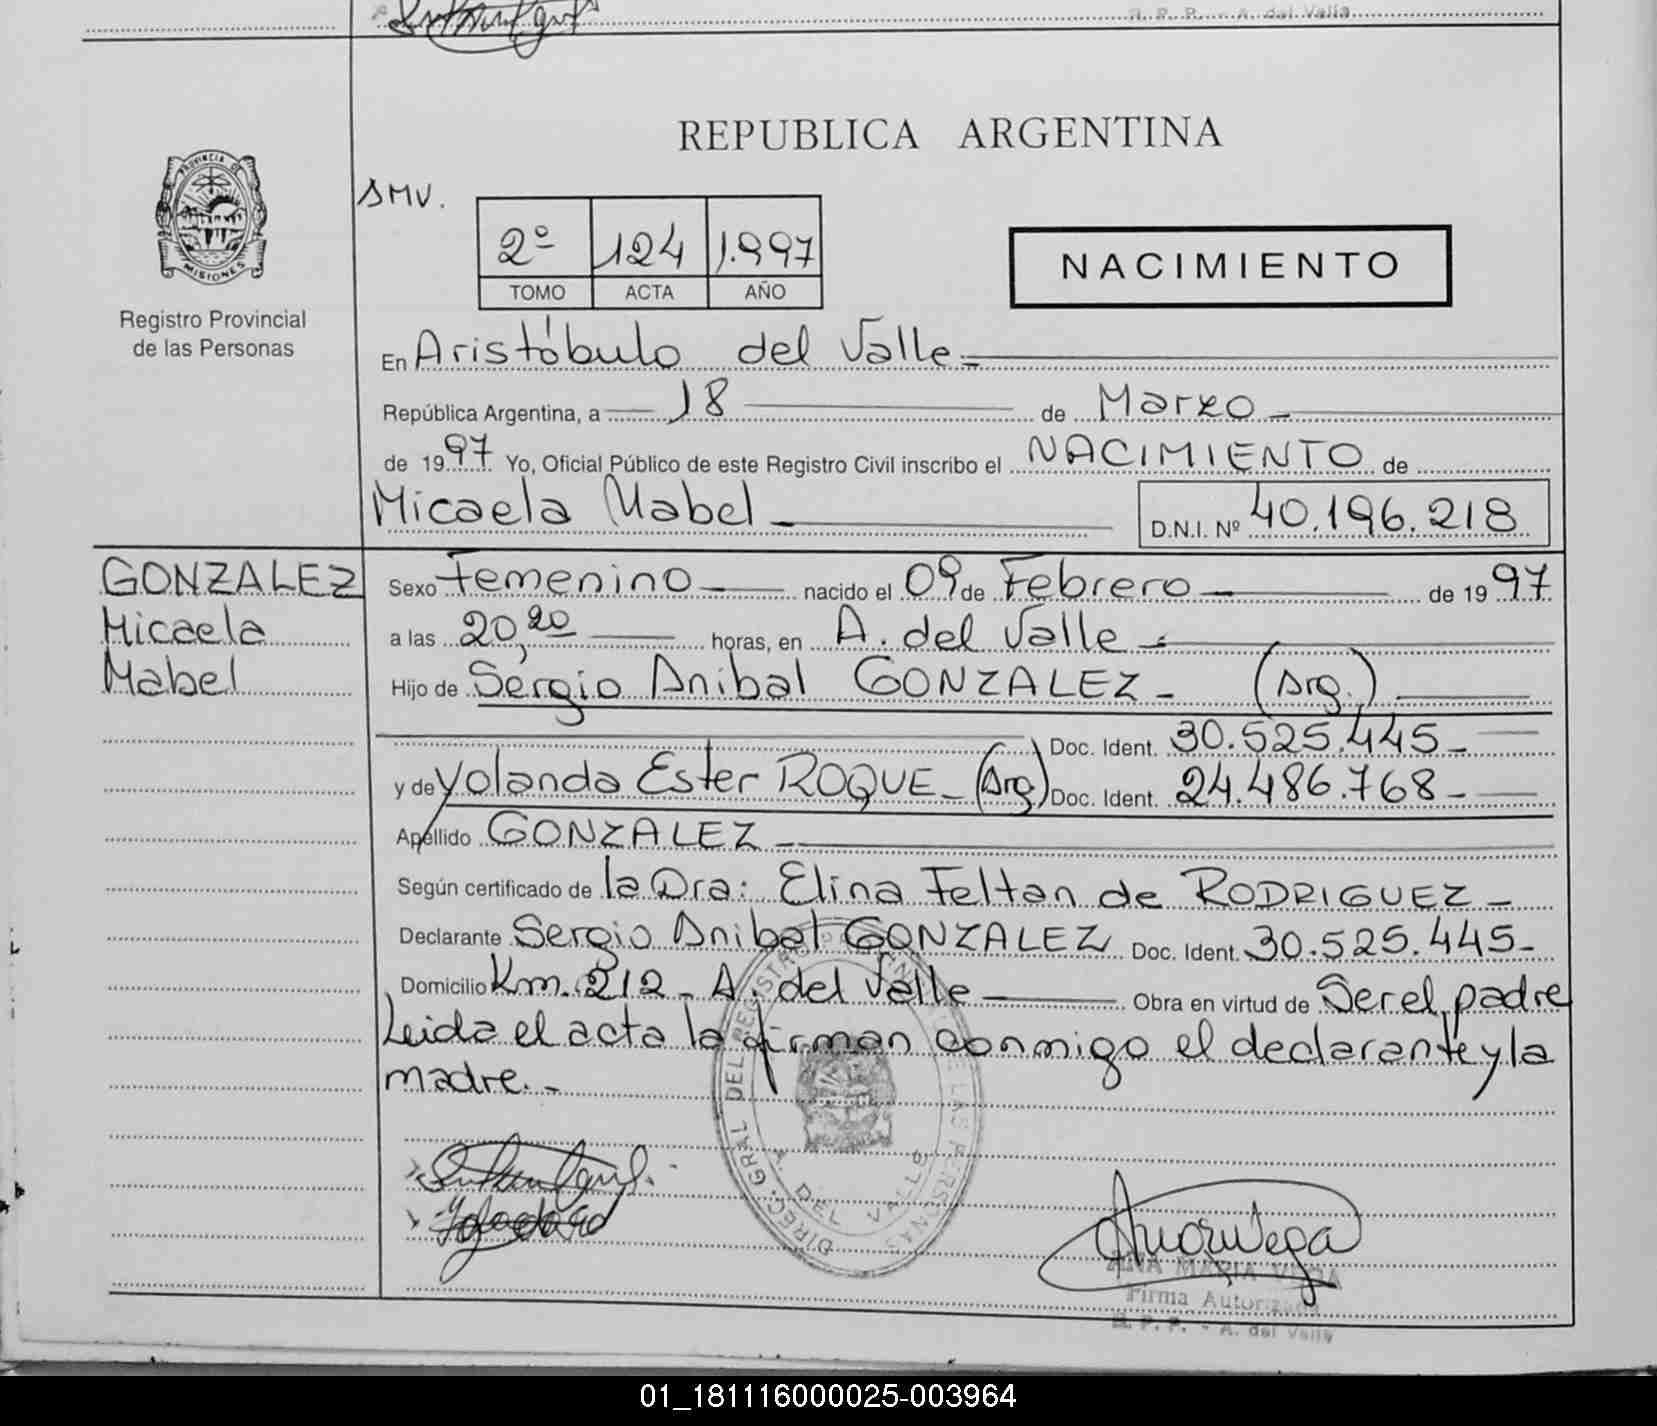 R. P. P. - A. del Valle
REPUBLICA ARGENTINA
PROVINCIA DE
MISIONES
Registro Provincial
de las Personas
SMV.
2º 124 1.997
TOMO ACTA AÑO
NACIMIENTO
En Aristóbulo del Valle=
República Argentina, a 18 de Marzo
de 1997 Yo, Oficial Público de este Registro Civil inscribo el NACIMIENTO de
Micaela Mabel D.N.I. Nº 40.196.218
GONZALEZ
Micaela
Mabel
Sexo Femenino nacido el 09 de Febrero de 1997
a las 20,20 horas, en A. del Valle
Hijo de Sergio Anibal GONZALEZ - (Arg.)
Doc. Ident. 30.525.445-
y de Yolanda Ester ROQUE - (Arg) Doc. Ident. 24.486.768-
Apellido GONZALEZ
Según certificado de la Dra: Elina Feltan de RODRIGUEZ -
Declarante Sergio Anibal GONZALEZ Doc. Ident. 30.525.445-
Domicilio Km. 212 - A. del Valle Obra en virtud de Ser el padre
Leida el acta la firman conmigo el declarante y la
madre.-
DIREC. GRAL. DEL REGISTRO DE LAS PERSONAS
A. DEL VALLE
ANA MARIA VEGA
Firma Autorizada
R. P. P. - A. del Valle
01_181116000025-003964